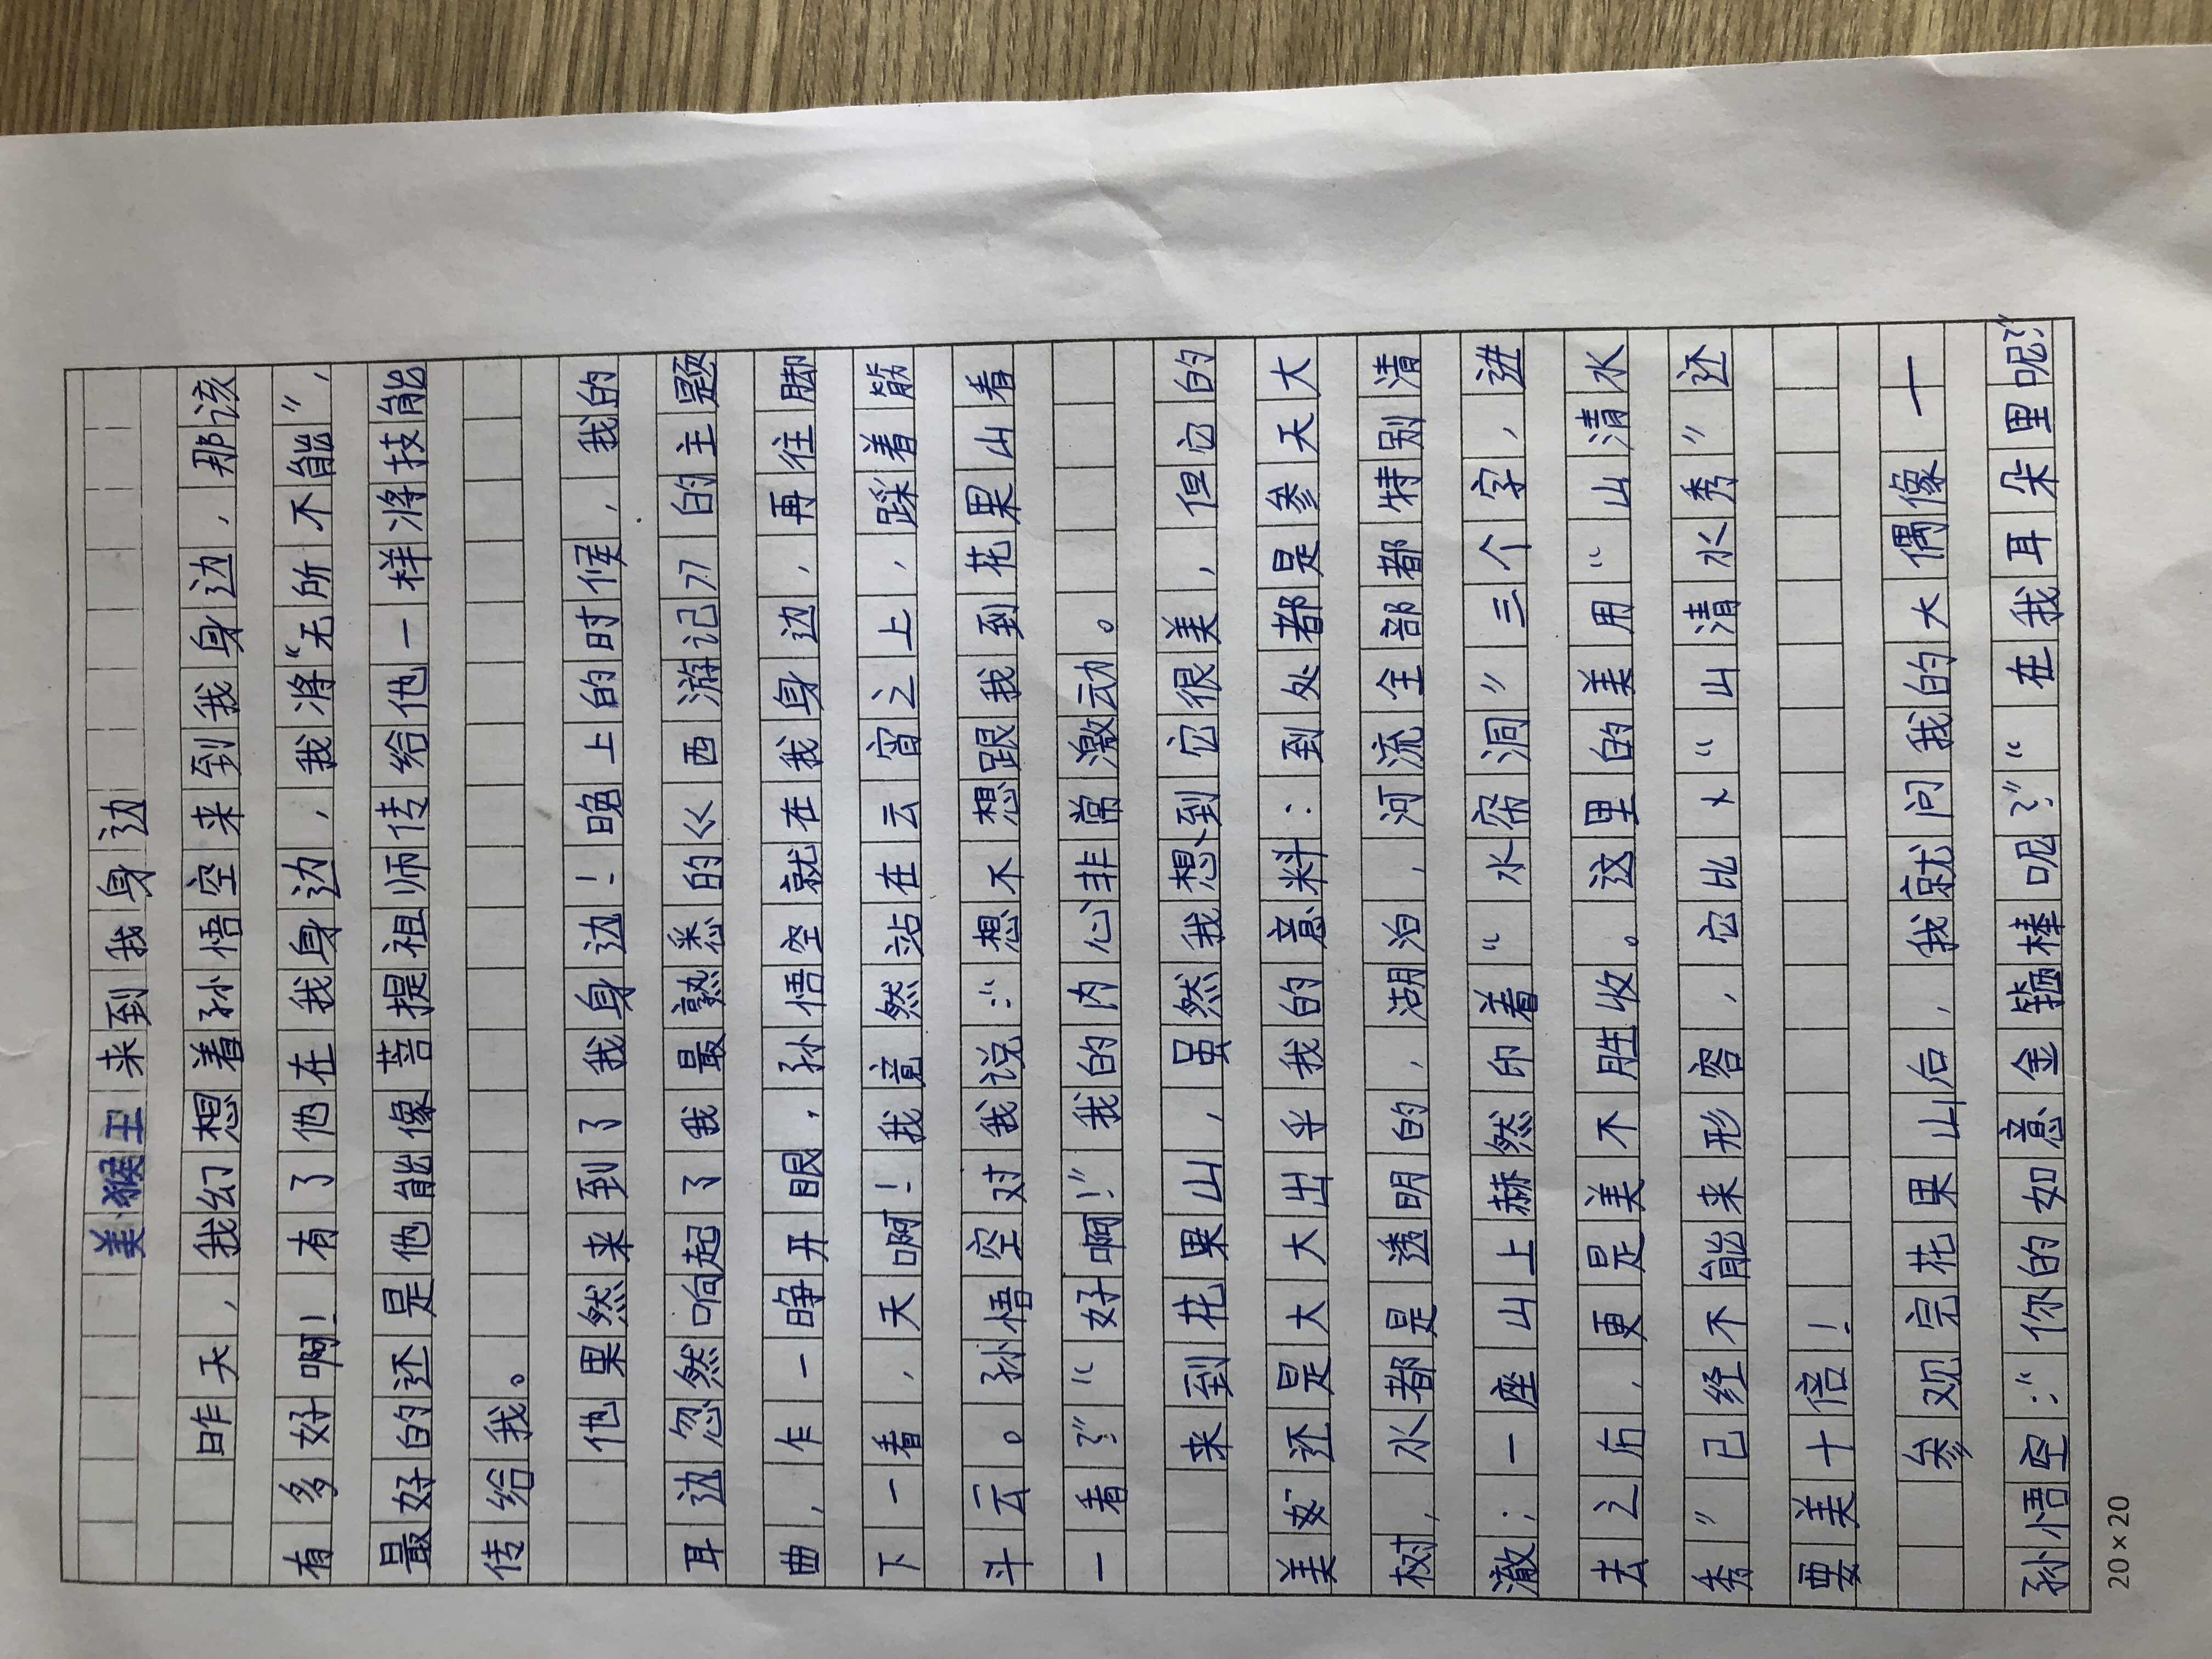 美猴王来到我身边
昨天，我幻想着孙悟空来到我身边，那该
有多好啊！有了他在我身边，我将“无所不能”，
最好的还是他能像菩提祖师传给他一样将技能
传给我。
他果然来到了我身边！晚上的时候，我的
耳边忽然响起了我最熟悉的《西游记》的主题
曲，乍一睁开眼，孙悟空就在我身边，再往脚
下一看，天啊！我竟然站在云宵之上，踩着筋
斗云。孙悟空对我说：“想不想跟我到花果山看
一看？”“好啊！”我的内心非常激动。
来到花果山，虽然我想到它很美，但它的
美妙还是大大出乎我的意料：到处都是参天大
树，水都是透明的，湖泊，河流全部都特别清
澈；一座山上赫然印着“水帘洞”三个字，进
去之后，更是美不胜收。这里的美用“山清水
秀”已经不能来形容，它比“山清水秀”还
要美十倍！
参观完花果山后，我就问我的大偶像——
孙悟空：“你的如意金箍棒呢？”“在我耳朵里呢？”
20×20